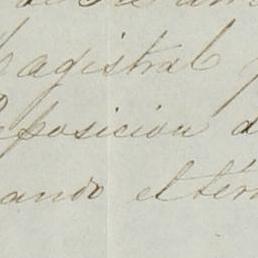 Magistral
posicion d
ando el tér